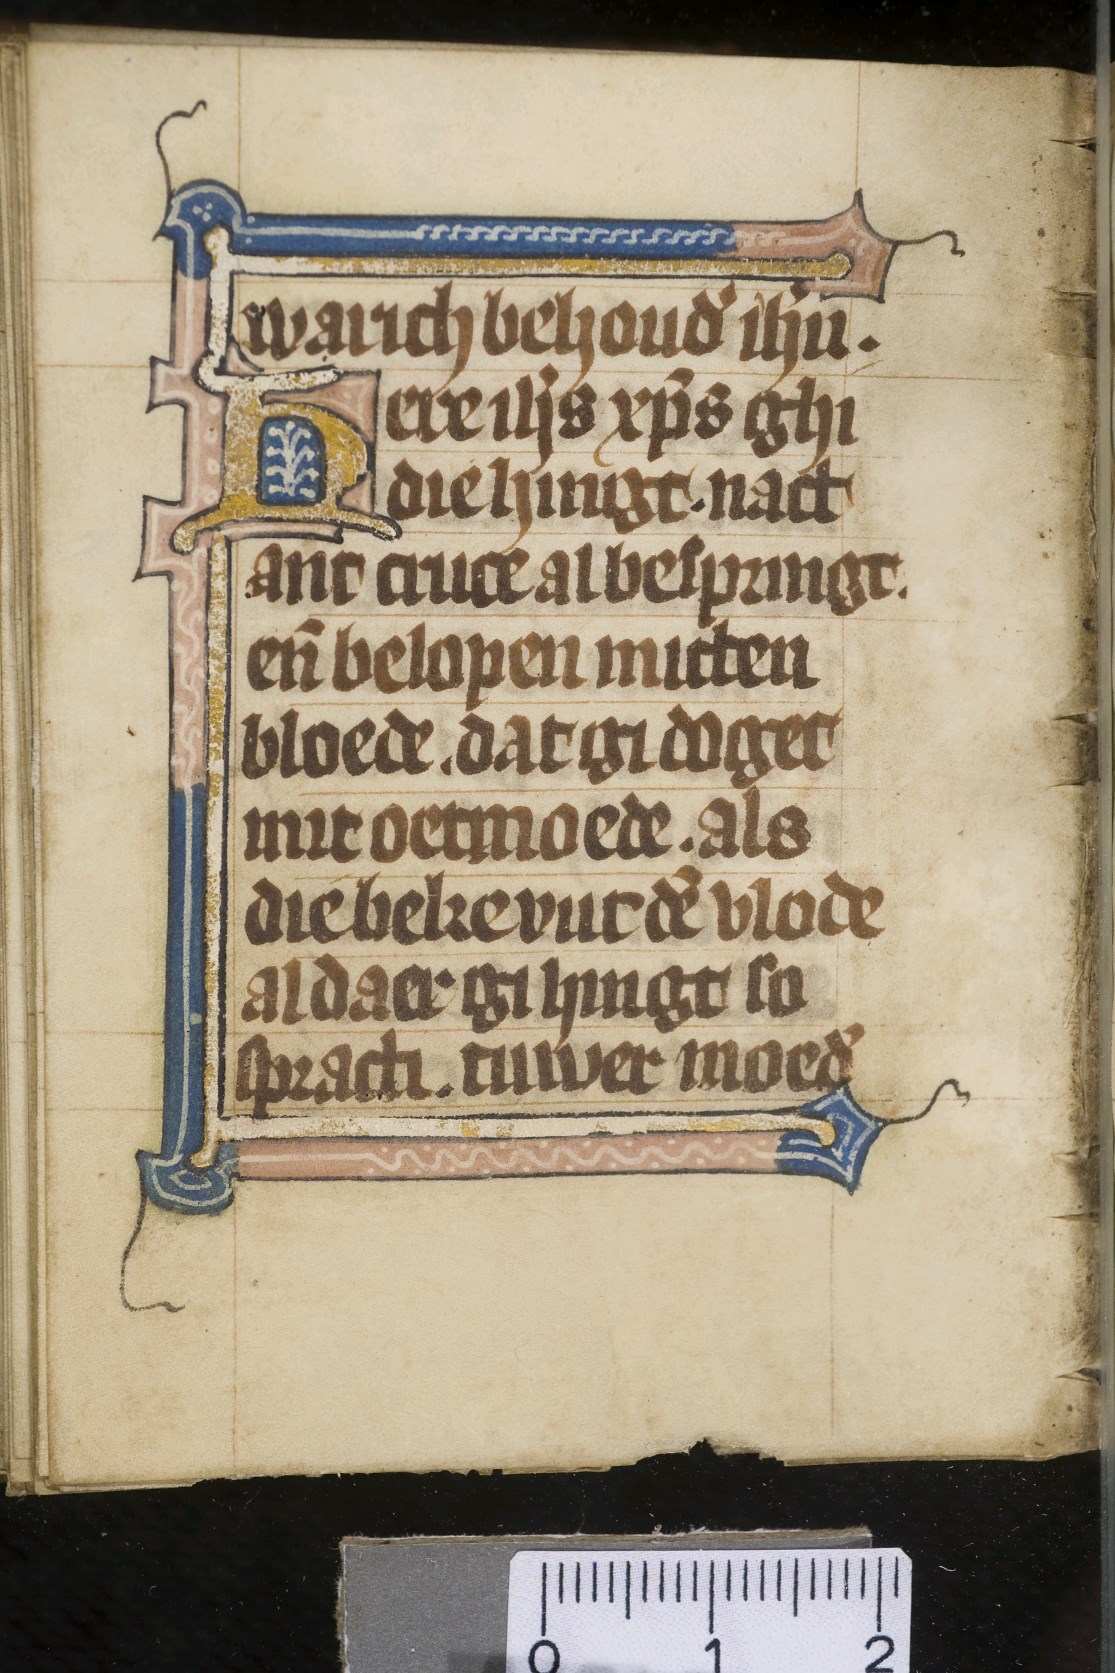 warich behoud̉ ih̉u.
Here ih̉s xp̄s ghi
die hingt. nact
ant cruce al bespringt.
en̄ belopen mitten
bloede. dat gi doget
mit oetmoede. als
die beke vut dē vlode
al daer gi hingt so
sprach. tuwer moed̉
0 1 2